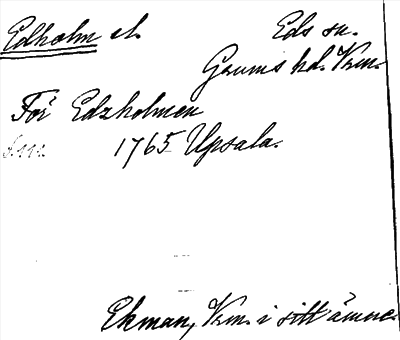 Edholm et. Eds sn.
Grums hd. Vrm.
För Edzholmen
1765 Upsala.
Ekman, Vrm. i sitt ämne.